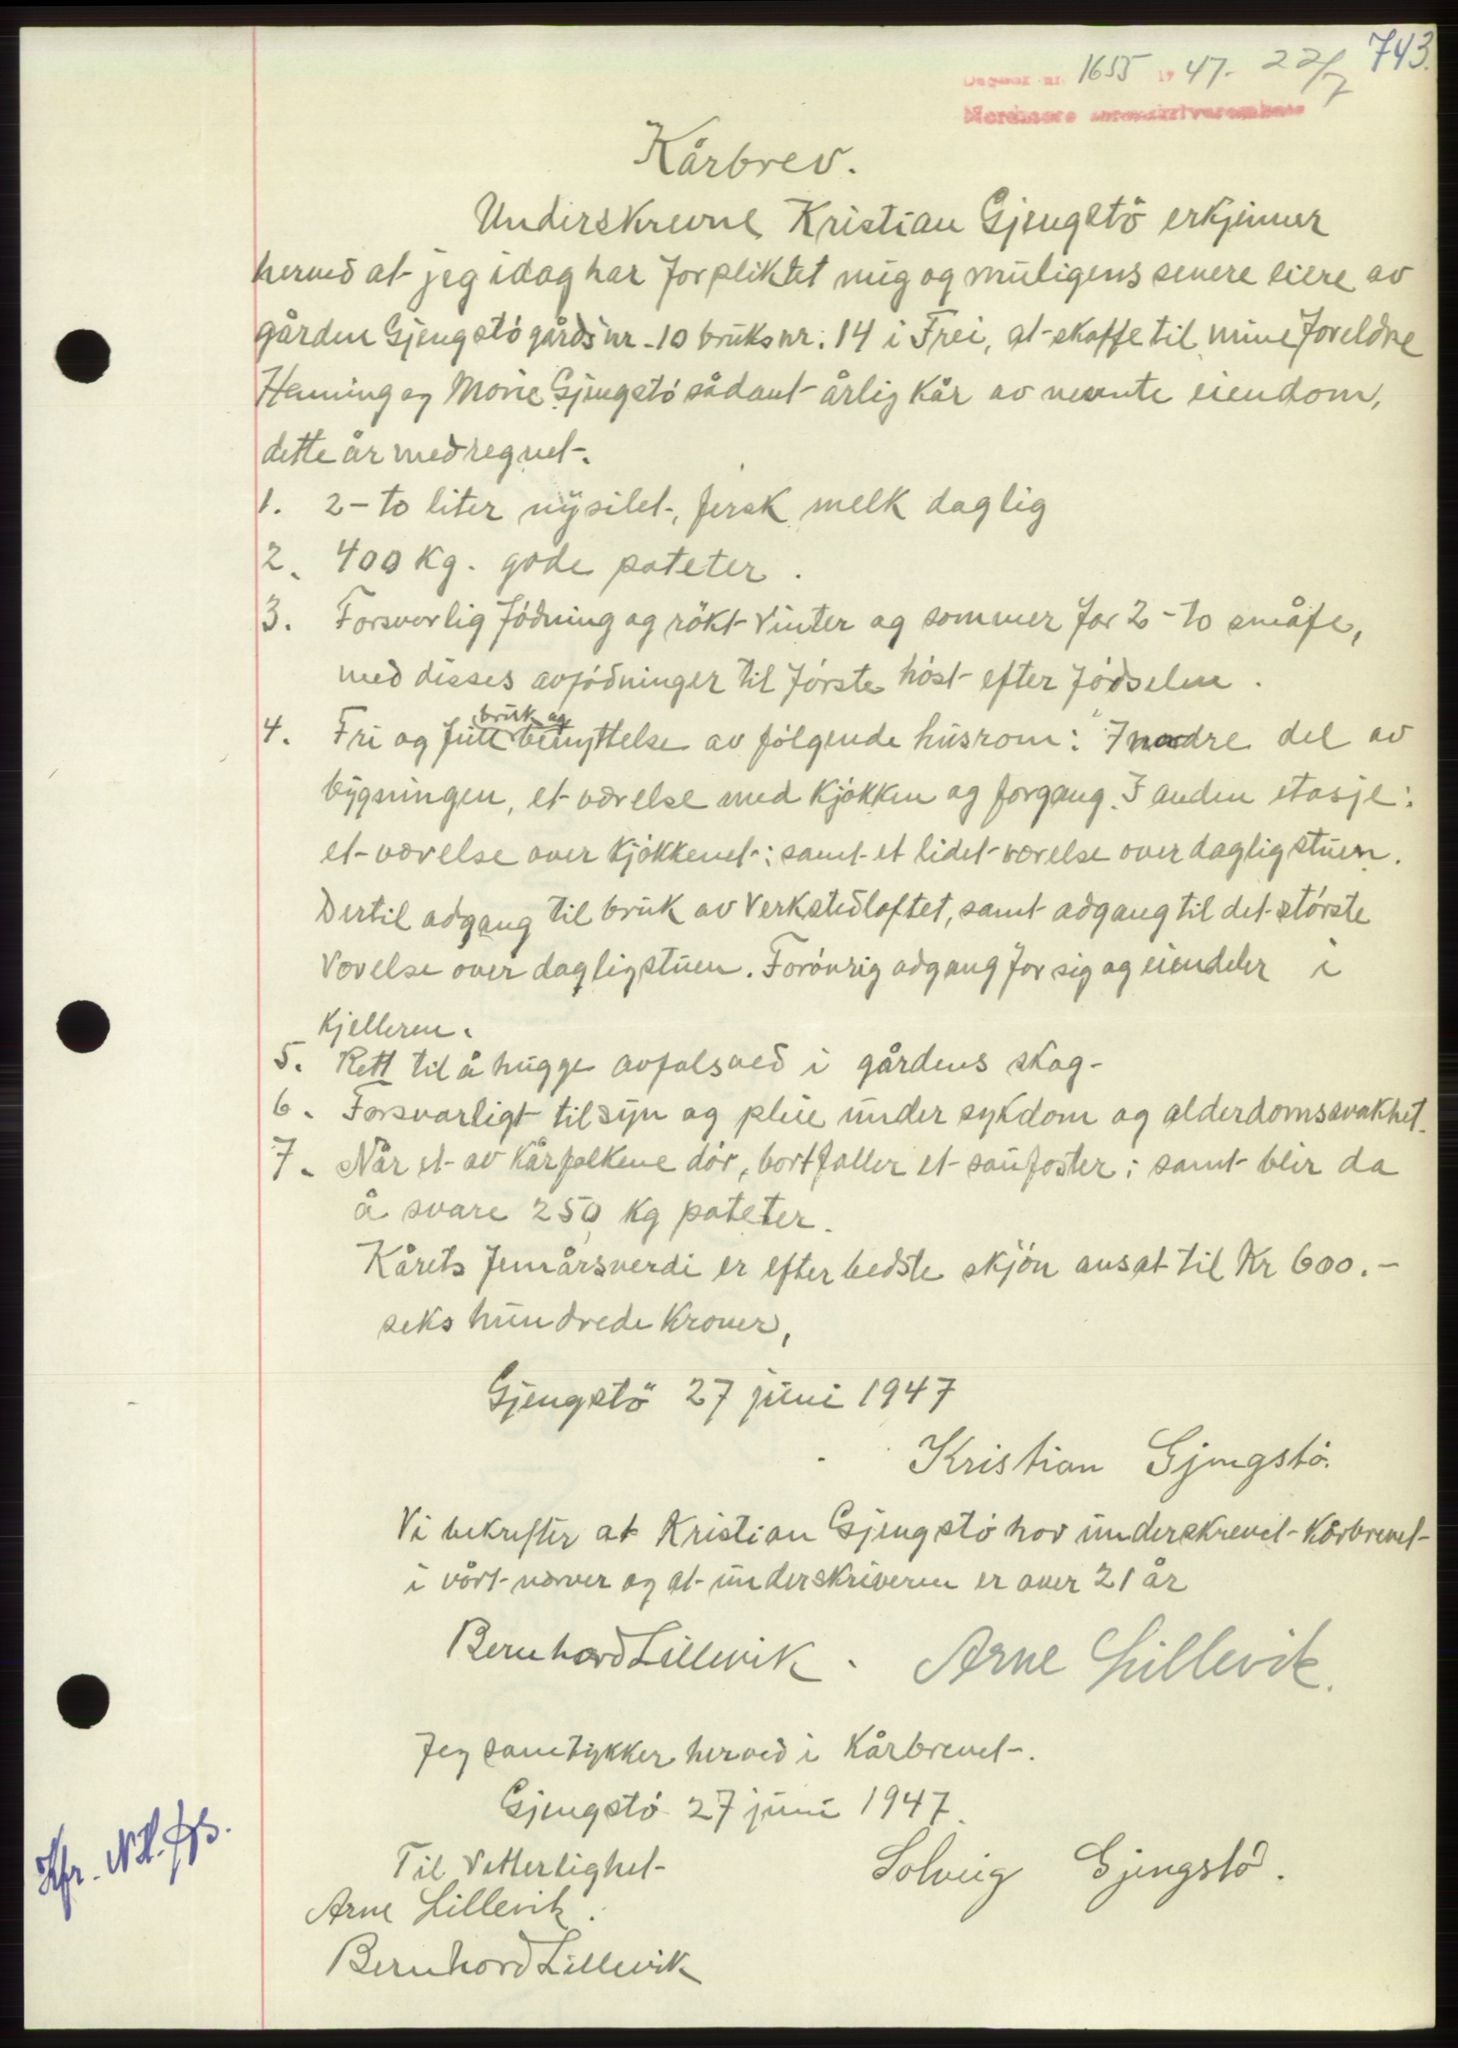 743.
Dagbok nr. 1655 1947. 22/7
Nordmøre sorenskriverembete
Kårbrev.
Underskrevne Kristian Gjengstö erkjenner
herved at jeg idag har forpliktet mig og muligens senere eiere av
gården Gjengstö gårdsnr. 10 bruksnr. 14 i Frei, at skaffe til mine foreldre
Henning og Marie Gjengstö sådant årlig kår av nevnte eiendom,
dette år medregnet.
1. 2 - to liter nysilet, fersk melk daglig
2. 400 Kg. gode poteter.
3. Forsvarlig födning og rökt vinter og sommer for 2 - to småfe,
med disses avfödninger til förste höst efter födselen.
4. Fri og full bruk og benyttelse av fölgende husrom: I nordre del av
bygningen, et værelse med kjökken og forgang. I anden etasje:
et værelse over kjökkenet; samt et lidet værelse over dagligstuen.
Dertil adgang til bruk av verkstedloftet, samt adgang til det störste
værelse over dagligstuen. Forövrig adgang for sig og eiendeler i
kjelleren.
5. Rett til å hugge avfalsved i gårdens skog -
6. Forsvarligt tilsyn og pleie under sykdom og alderdomssvakhet.
7. Når et av kårfolkene dör, bortfaller et saufoster; samt blir da
å svare 250 kg poteter.
Kårets femårsverdi er efter bedste skjön ansat til Kr 600.-
seks hundrede kroner,
Gjengstö 27 juni 1947
Kristian Gjengstö.
Vi bekrefter at Kristian Gjengstö har underskrevet kårbrevet
i vårt nærver og at underskriveren er over 21 år
Bernhard Lillevik. Arne Lillevik.
Jeg samtykker herved i kårbrevet.
Gjengstö 27 juni 1947.
Til Vetterlighet Solveig Gjengstö.
Arne Lillevik.
Bernhard Lillevik